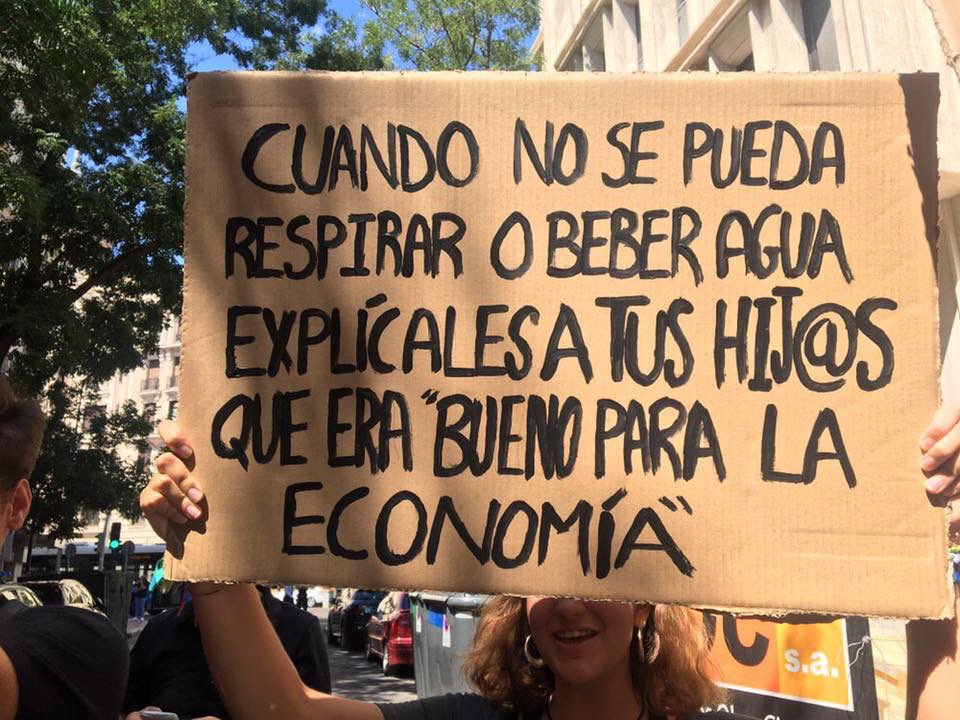 CUANDO NO SE PUEDA
RESPIRAR O BEBER AGUA
EXPLÍCALES A TUS HIJ@S
QUE ERA "BUENO PARA LA
ECONOMÍA"
s.a.